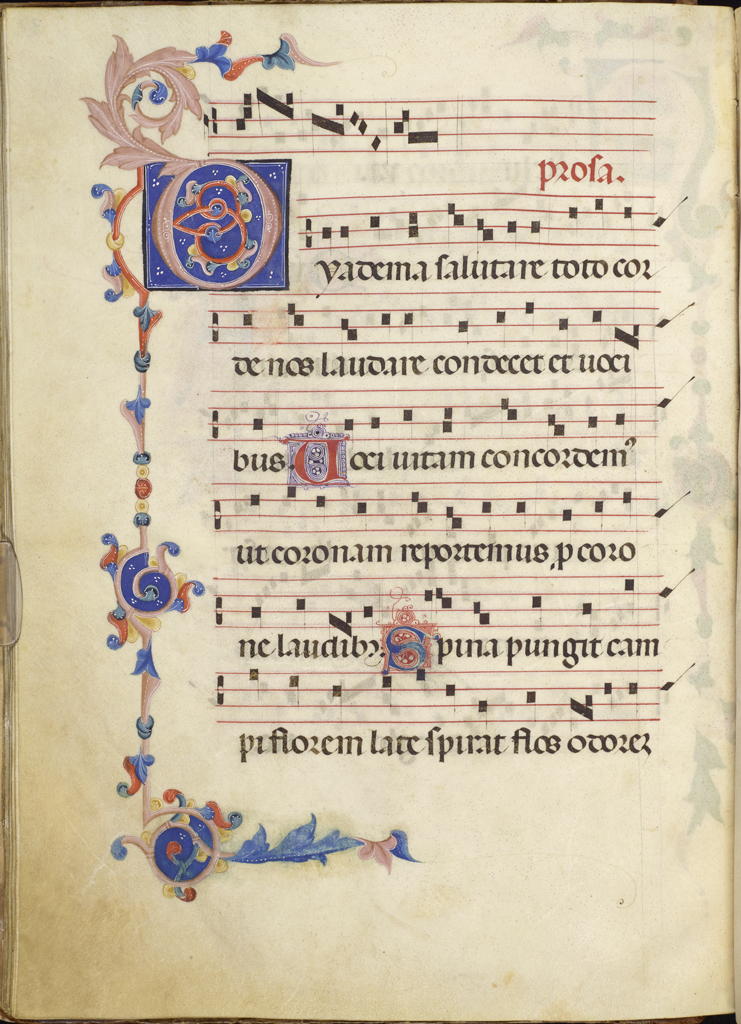 prosa.
Dyadema salutare toto cor
de nos laudare condecet et uoci
bus. Uoci uitam concordem⁹
ut coronam reportemus, p coro
ne laudibȝ. Spina pungit cam
pi florem late spirat flos odoreʒ